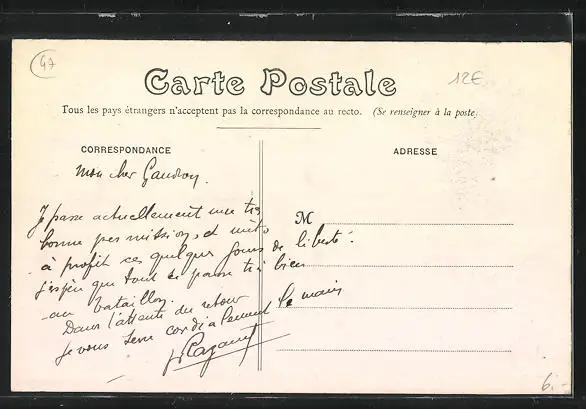 47
12€
Carte Postale
Tous les pays étrangers n'acceptent pas la correspondance au recto. (Se renseigner à la poste)
CORRESPONDANCE
ADRESSE
Mon cher Gaudroy.
M
Je passe actuellement une très
bonne permission, et mets
à profit ces quelques jours de liberté.
j'espère que tout se passe très bien
au bataillon.
Dans l'attente du retour
je vous serre cordialement la main
Cazanet
6.-